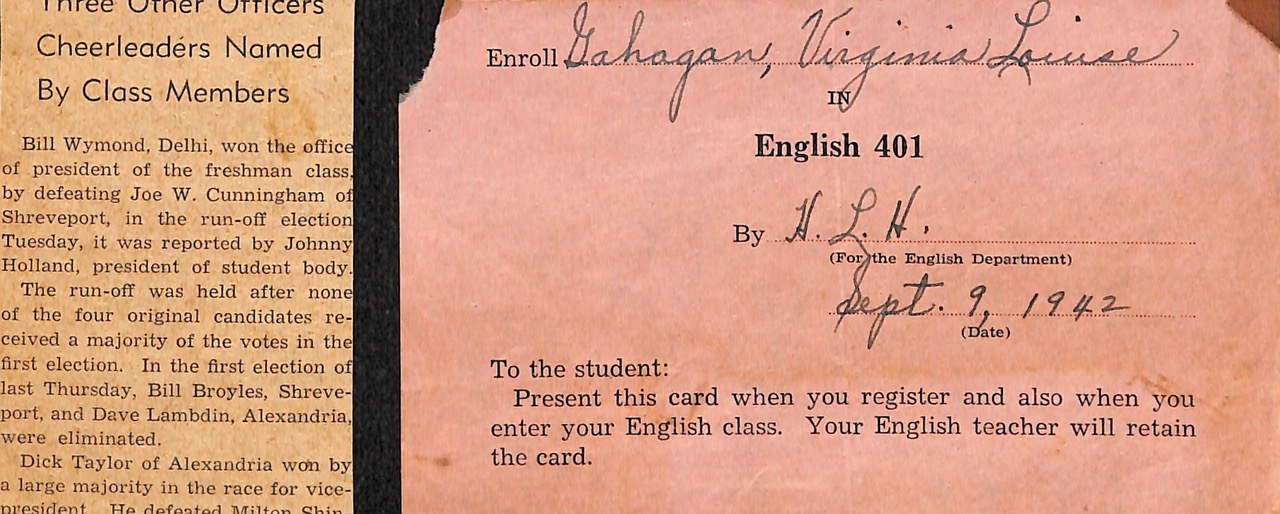 Three Other Officers
Cheerleaders Named
By Class Members
Bill Wymond, Delhi, won the office
of president of the freshman class,
by defeating Joe W. Cunningham of
Shreveport, in the run-off election
Tuesday, it was reported by Johnny
Holland, president of student body.
The run-off was held after none
of the four original candidates re-
ceived a majority of the votes in the
first election. In the first election of
last Thursday, Bill Broyles, Shreve-
port, and Dave Lambdin, Alexandria,
were eliminated.
Dick Taylor of Alexandria won by
a large majority in the race for vice-
president. He defeated Milton Shin-
Enroll Gahagan, Virginia Louise
IN
English 401
By H. L. H.
(For the English Department)
Sept. 9, 1942
(Date)
To the student:
Present this card when you register and also when you
enter your English class. Your English teacher will retain
the card.